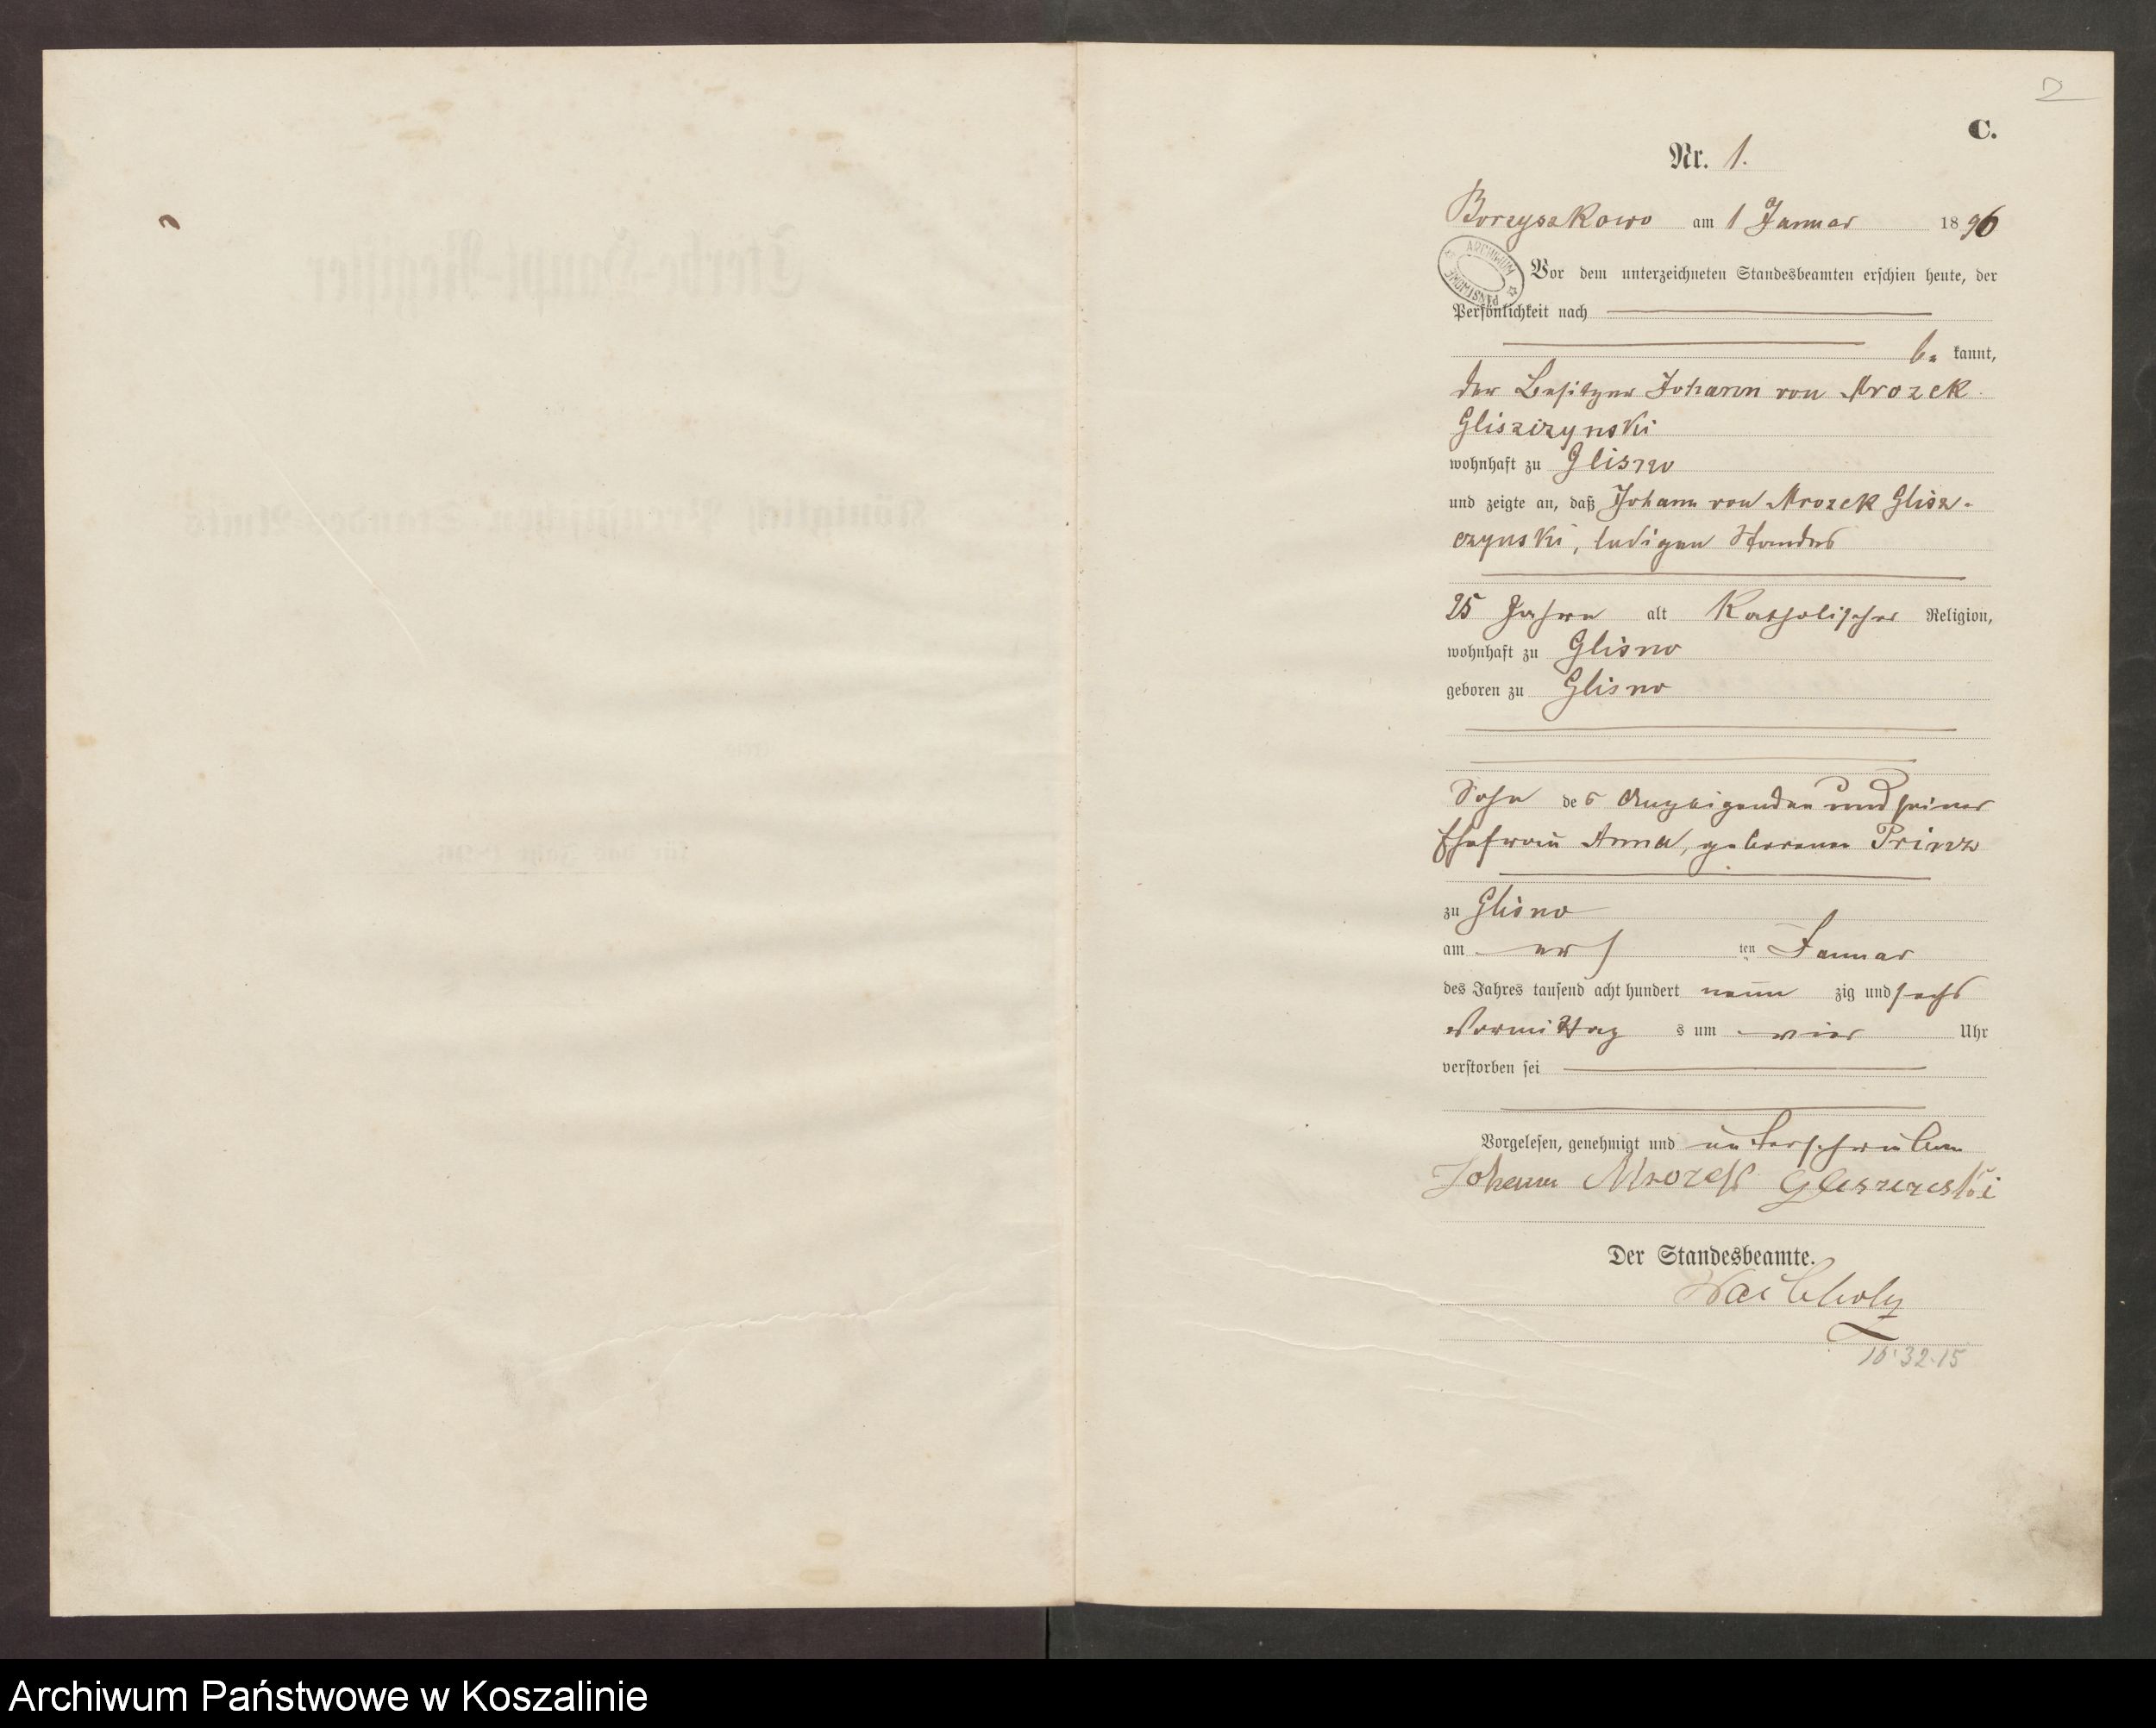 2
C.
Nr. 1.
Borzyszkowo am 1 Januar 1896
ARCHIWUM PAŃSTWOWE
Vor dem unterzeichneten Standesbeamten erschien heute, der
Persönlichkeit nach
be kannt,
der Besitzer Johann von Mrozek
Gliszczynski
wohnhaft zu Glisno
und zeigte an, daß Johann von Mrozek Glisz-
czynski, ledigen Standes
25 Jahre alt Katholischer Religion,
wohnhaft zu Glisno
geboren zu Glisno
Sohn des Anzeigenden und seiner
Ehefrau Anna, geborenen Prinz
zu Glisno
am ersten Januar
des Jahres tausend acht hundert neun zig und sechs
Vormittags um vier Uhr
verstorben sei
Vorgelesen, genehmigt und unterschrieben
Johann Mrozek
Der Standesbeamte.
16.32.15
Archiwum Państwowe w Koszalinie